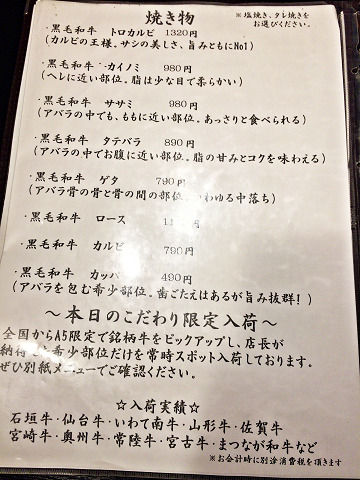 焼き物
※塩焼き、タレ焼きを
お選びください。
・黒毛和牛 トロカルビ 1320円
(カルビの王様、サシの美しさ、旨みともにNo1)
・黒毛和牛 カイノミ 980円
(ヘレに近い部位。脂は少な目で柔らかい)
・黒毛和牛 ササミ 980円
(アバラの中でも、ももに近い部分。あっさりと食べられる)
・黒毛和牛 タテバラ 890円
(アバラの中でお腹に近い部分。脂の甘みとコクを味わえる)
・黒毛和牛 ゲタ 790円
(アバラ骨の骨と骨の間の部位。わゆる中落ち)
・黒毛和牛 ロース
・黒毛和牛 カルビ 790円
・黒毛和牛 カッパ 490円
(アバラを包む希少部位。歯ごたえはあるが旨み抜群!)
～本日のこだわり限定入荷～
全国からA5限定で銘柄牛をピックアップし、店長が
納得 希少部位だけを常時スポット入荷しております。
ぜひ別紙メニューでご確認ください。
☆入荷実績☆
石垣牛・仙台牛・いわて南牛・山形牛・佐賀牛
宮崎牛・奥州牛・常陸牛・宮古牛・まつなが和牛など
※お会計時に別途消費税を頂きます